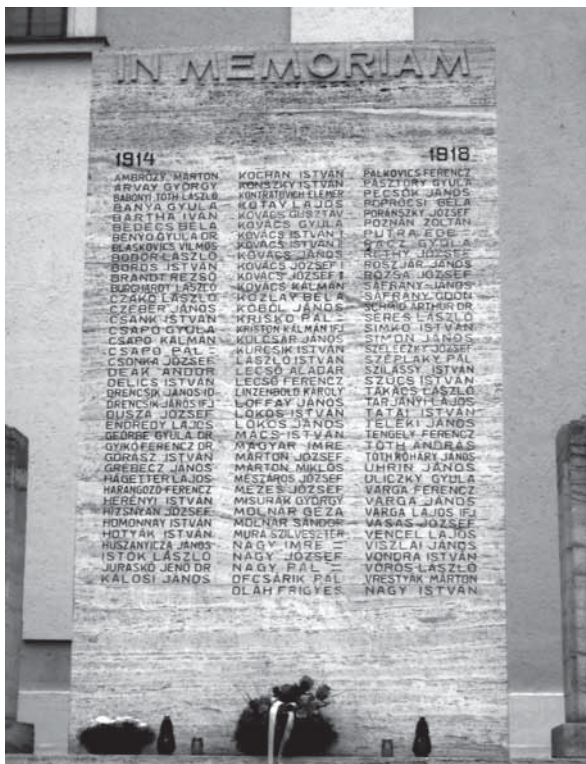 IN MEMORIAM
1914
1918
AMBRÓZY MÁRTON
ÁRVAY GYÖRGY
BABONYI TÓTH LÁSZLÓ
BÁNYA GYULA
BARTHA IVÁN
BEDÉCS BÉLA
BENYÓ GYULA DR
BLASKOVICS VILMOS
BODOR LÁSZLÓ
BOROS ISTVÁN
BRANDT REZSŐ
BURGHARDT LÁSZLÓ
CZAKÓ LÁSZLÓ
CZEBER JÁNOS
CSANK ISTVÁN
CSAPÓ GYULA
CSAPÓ KÁLMÁN
CSAPÓ PÁL
CSONKA JÓZSEF
DEÁK ANDOR
DELICS ISTVÁN
DRENCSIK JÁNOS ID
DRENCSIK JÁNOS IFJ
DUSZA JÓZSEF
ENDRÉDY LAJOS
GEÖRBE GYULA DR
GYIKÓ FERENCZ DR
GÓRÁSZ ISTVÁN
GREBECZ JÁNOS
HÁGETTER LAJOS
HARANGOZÓ FERENCZ
HERÉNYI ISTVÁN
HIZSNYAN JÓZSEF
HOMONNAY ISTVÁN
HOTYÁK ISTVÁN
HUSZANYICZA JÁNOS
ISTÓK LÁSZLÓ
JURASKÓ JENŐ DR
KÁLOSI JÁNOS
KOCHAN ISTVÁN
KONSZKY ISTVÁN
KONTRATOVICH ELEMÉR
KOTAY LAJOS
KOVÁCS GUSZTÁV
KOVÁCS GYULA
KOVÁCS ISTVÁN I
KOVÁCS ISTVÁN II
KOVÁCS JÁNOS
KOVÁCS JÓZSEF I
KOVÁCS JÓZSEF II
KOVÁCS KÁLMÁN
KOZLAY BÉLA
KÖBÖL JÁNOS
KRISKÓ PÁL
KRISTON KÁLMÁN IFJ
KULCSÁR JÁNOS
KURCSIK ISTVÁN
LÁSZLÓ ISTVÁN
LECSŐ ALADÁR
LECSŐ FERENCZ
LINZENBOLD KÁROLY
LOFFAY JÁNOS
LŐKÖS ISTVÁN
LŐKÖS JÁNOS
MÁCS ISTVÁN
MAGYAR IMRE
MÁRTON JÓZSEF
MÁRTON MIKLÓS
MÉSZÁROS JÓZSEF
MÉZES JÓZSEF
MISURÁK GYÖRGY
MOLNÁR GÉZA
MOLNÁR SÁNDOR
MURA SZILVESZTER
NAGY IMRE
NAGY JÓZSEF
NAGY PÁL
OFCSÁRIK PÁL
OLÁH FRIGYES
PALKOVICS FERENCZ
PÁSZTORY GYULA
PECSÖK JÁNOS
POPRÓCSI BÉLA
PORÁNSZKY JÓZSEF
POZNÁN ZOLTÁN
PUTRA EDE
RÁCZ GYULA
RÉTHY JÓZSEF
ROSZJÁR JÁNOS
RÓZSA JÓZSEF
SÁFRÁNY JÁNOS
SÁFRÁNY ÖDÖN
SCHMID ARTHUR DR
SERES LÁSZLÓ
SIMKÓ ISTVÁN
SIMON JÁNOS
SZELECZKY JÓZSEF
SZÉPLAKY PÁL
SZILASSY ISTVÁN
SZŰCS ISTVÁN
TAKÁCS LÁSZLÓ
TARJÁNYI LAJOS
TATAI ISTVÁN
TELEKI JÁNOS
TENGELY FERENCZ
TÓTH ANDRÁS
TÓTH RÓHÁRY JÁNOS
UHRIN JÁNOS
ULICZKY GYULA
VARGA FERENCZ
VARGA JÁNOS
VARGA LAJOS IFJ
VASAS JÓZSEF
VENCEL LAJOS
VISZLAI JÁNOS
VONDRA ISTVÁN
VÖRÖS LÁSZLÓ
VRESTYÁK MÁRTON
NAGY ISTVÁN